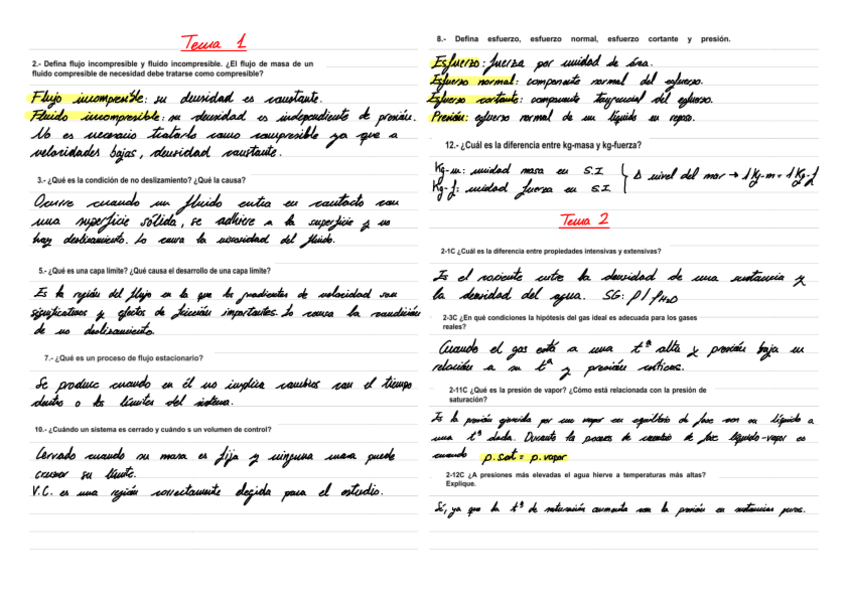 Tema 1
2.- Defina flujo incompresible y fluido incompresible. ¿El flujo de masa de un
fluido compresible de necesidad debe tratarse como compresible?
Flujo incompresible: su densidad es constante.
Fluido incompresible: su densidad es independiente de presión.
No es necesario tratarlo como compresible ya que a
velocidades bajas, densidad constante.
3.- ¿Qué es la condición de no deslizamiento? ¿Qué la causa?
Ocurre cuando un fluido entra en contacto con
una superficie sólida, se adhiere a la superficie y no
hay deslizamiento. Lo causa la viscosidad del fluido.
5.- ¿Qué es una capa límite? ¿Qué causa el desarrollo de una capa límite?
Es la región del flujo en la que los gradientes de velocidad son
significativos y efectos de fricción importantes. Lo causa la condición
de no deslizamiento.
7.- ¿Qué es un proceso de flujo estacionario?
Se produce cuando en él no implica cambios con el tiempo
dentro o los límites del sistema.
10.- ¿Cuándo un sistema es cerrado y cuándo s un volumen de control?
Cerrado cuando su masa es fija y ninguna masa puede
cruzar su límite.
V.C. es una región correctamente elegida para el estudio.
8.- Defina esfuerzo, esfuerzo normal, esfuerzo cortante y presión.
Esfuerzo: fuerza por unidad de área.
Esfuerzo normal: componente normal del esfuerzo.
Esfuerzo cortante: componente tangencial del esfuerzo.
Presión: esfuerzo normal de un líquido en reposo.
12.- ¿Cuál es la diferencia entre kg-masa y kg-fuerza?
Kg-m: unidad masa en S.I
Kg-f: unidad fuerza en S.I. } Δ nivel del mar → 1Kg-m = 1Kg-f
Tema 2
2-1C ¿Cuál es la diferencia entre propiedades intensivas y extensivas?
Es el cociente entre la densidad de una sustancia y
la densidad del agua. SG: ρ/ρH₂O
2-3C ¿En qué condiciones la hipótesis del gas ideal es adecuada para los gases
reales?
Cuando el gas está a una tª alta y presión baja en
relación a su tª y presión críticas.
2-11C ¿Qué es la presión de vapor? ¿Cómo está relacionada con la presión de
saturación?
Es la presión ejercida por un vapor en equilibrio de fase con su líquido a
una tª dada. Durante los procesos de cambio de fase líquido-vapor es
cuando p.sat = p.vapor
2-12C ¿A presiones más elevadas el agua hierve a temperaturas más altas?
Explique.
Sí, ya que la tª de saturación aumenta con la presión en sustancias puras.